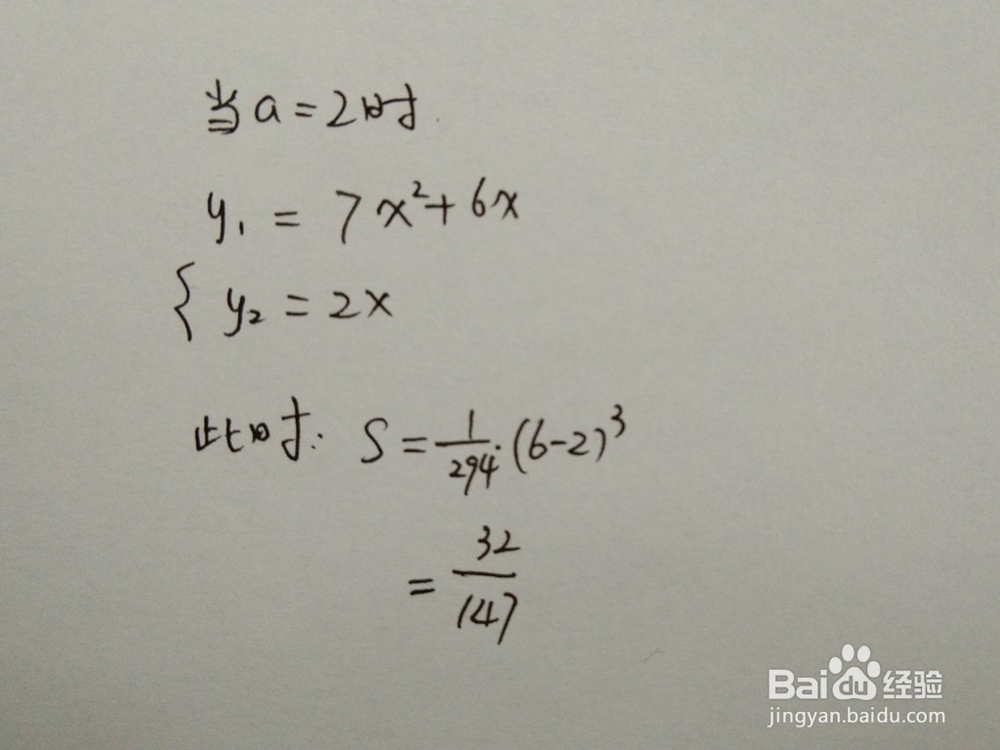 当a=2时.
y₁ = 7x²+6x
{ y₂ = 2x
此时: S = 1/294·(6-2)³
= 32/147
Baidu 经验
jingyan.baidu.com